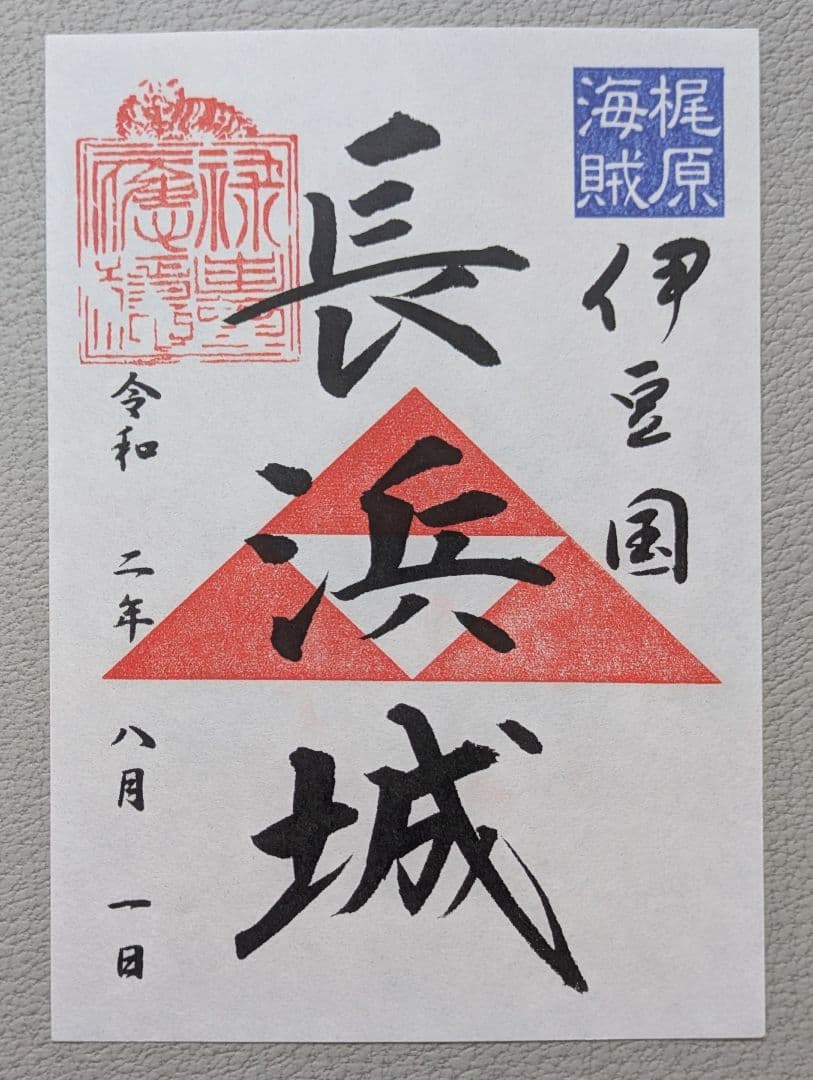 梶原
海賊
伊豆国
長浜城
禄寿
應穏
令和 二年 八月 一日